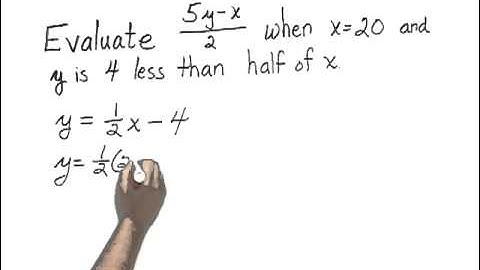 Evaluate (5y-x)/2 when x=20 and
y is 4 less than half of x.
y = 1/2 x - 4
y = 1/2 (2